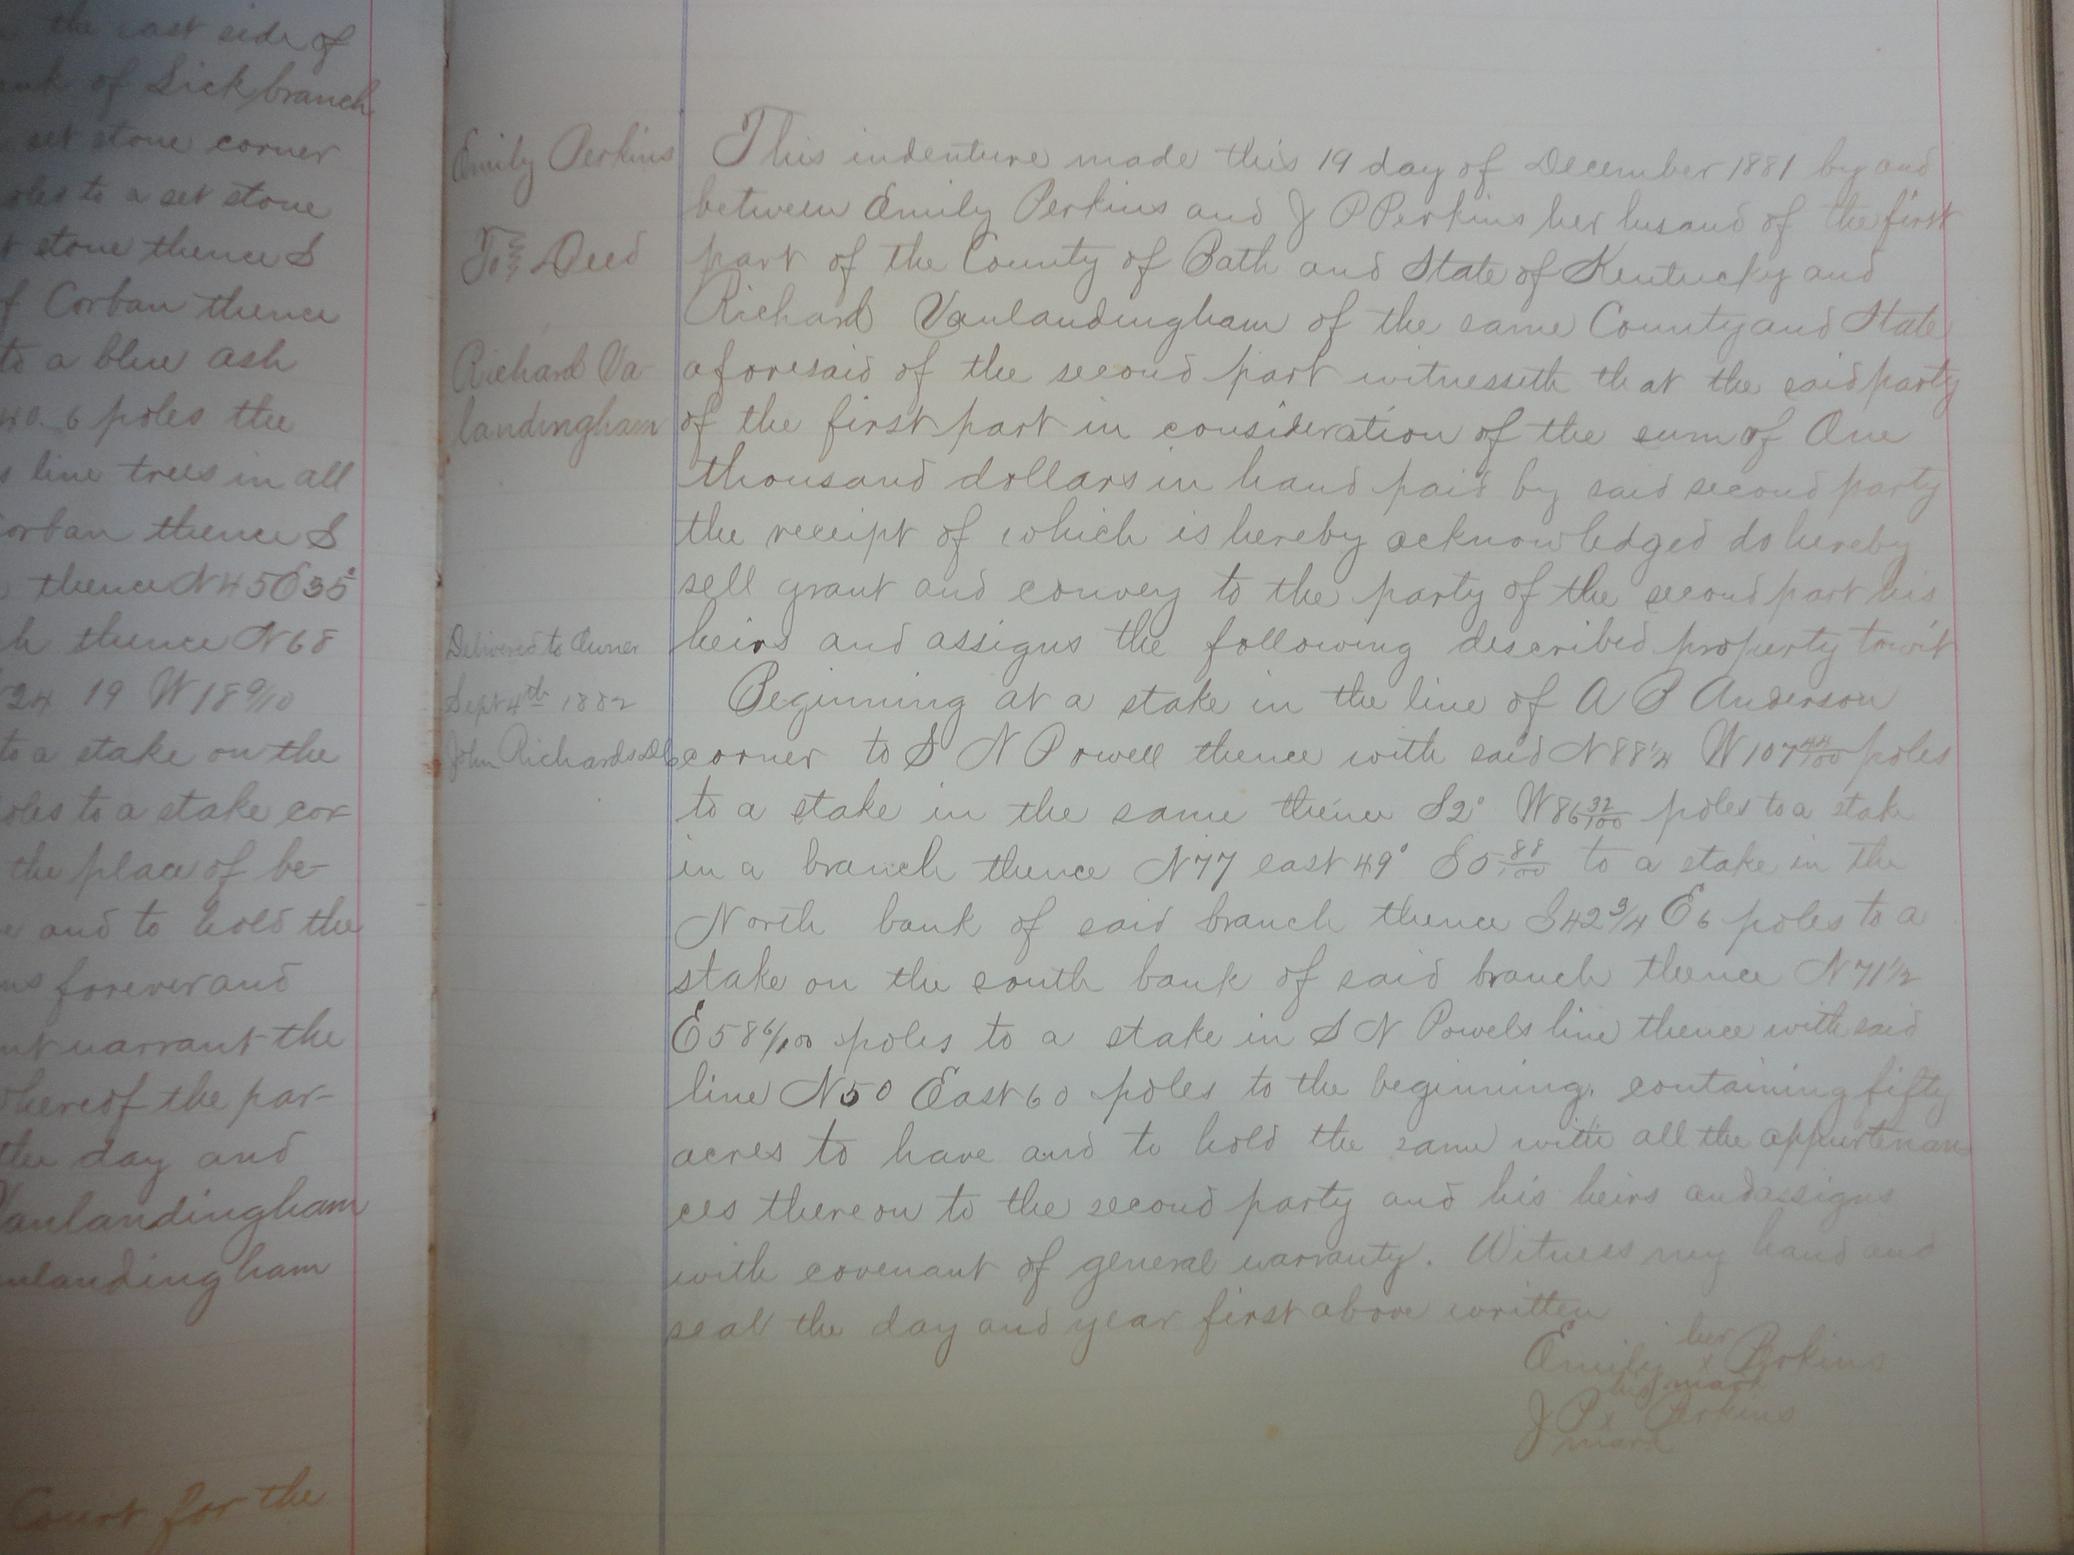 the east side of
of Lick branch
set stone corner
to a set stone
stone thence S
f Corban thence
to a blue ash
40. 6 poles the
line trees in all
orban thence S
thence N 45 E 35
thence N 68
24 19 W 18 9/10
to a stake on the
oles to a stake cor
the place of be-
and to hold the
forever and
warrant the
hereof the par-
the day and
Vanlandingham
nlandingham
Court for the
Emily Perkins
To Deed
Richard Va
landingham
Delivered to Owner
Sept 4th 1882
John Richards
This indenture made this 19 day of December 1881 by and
between Emily Perkins and J P Perkins her husand of the first
part of the County of Bath and State of Kentucky and
Richard Vanlandingham of the same County and State
aforesaid of the second part witnesseth that the said party
of the first part in consideration of the sum of One
thousand dollars in hand paid by said second party
the receipt of which is hereby acknowledged do hereby
sell grant and convey to the party of the second part his
heirs and assigns the following described property towit
Beginning at a stake in the line of A B Anderson
corner to S N Powell thence with said N 88 1/4 W 107 44/100 poles
to a stake in the same thence S 2° W 86 32/100 poles to a stake
in a branch thence N 77 east 49° S 5 88/100 to a stake in the
North bank of said branch thence S 42 3/4 E 6 poles to a
stake on the south bank of said branch thence N 71 1/2
E 58 6/100 poles to a stake in S N Powels line thence with said
line N 50 East 60 poles to the beginning. containing fifty
acres to have and to hold the same with all the appurtenan
ces thereon to the second party and his heirs and assigns
with covenant of general warranty. Witness my hand and
seal the day and year first above written
Emily her x mark Perkins
J P his x mark Perkins